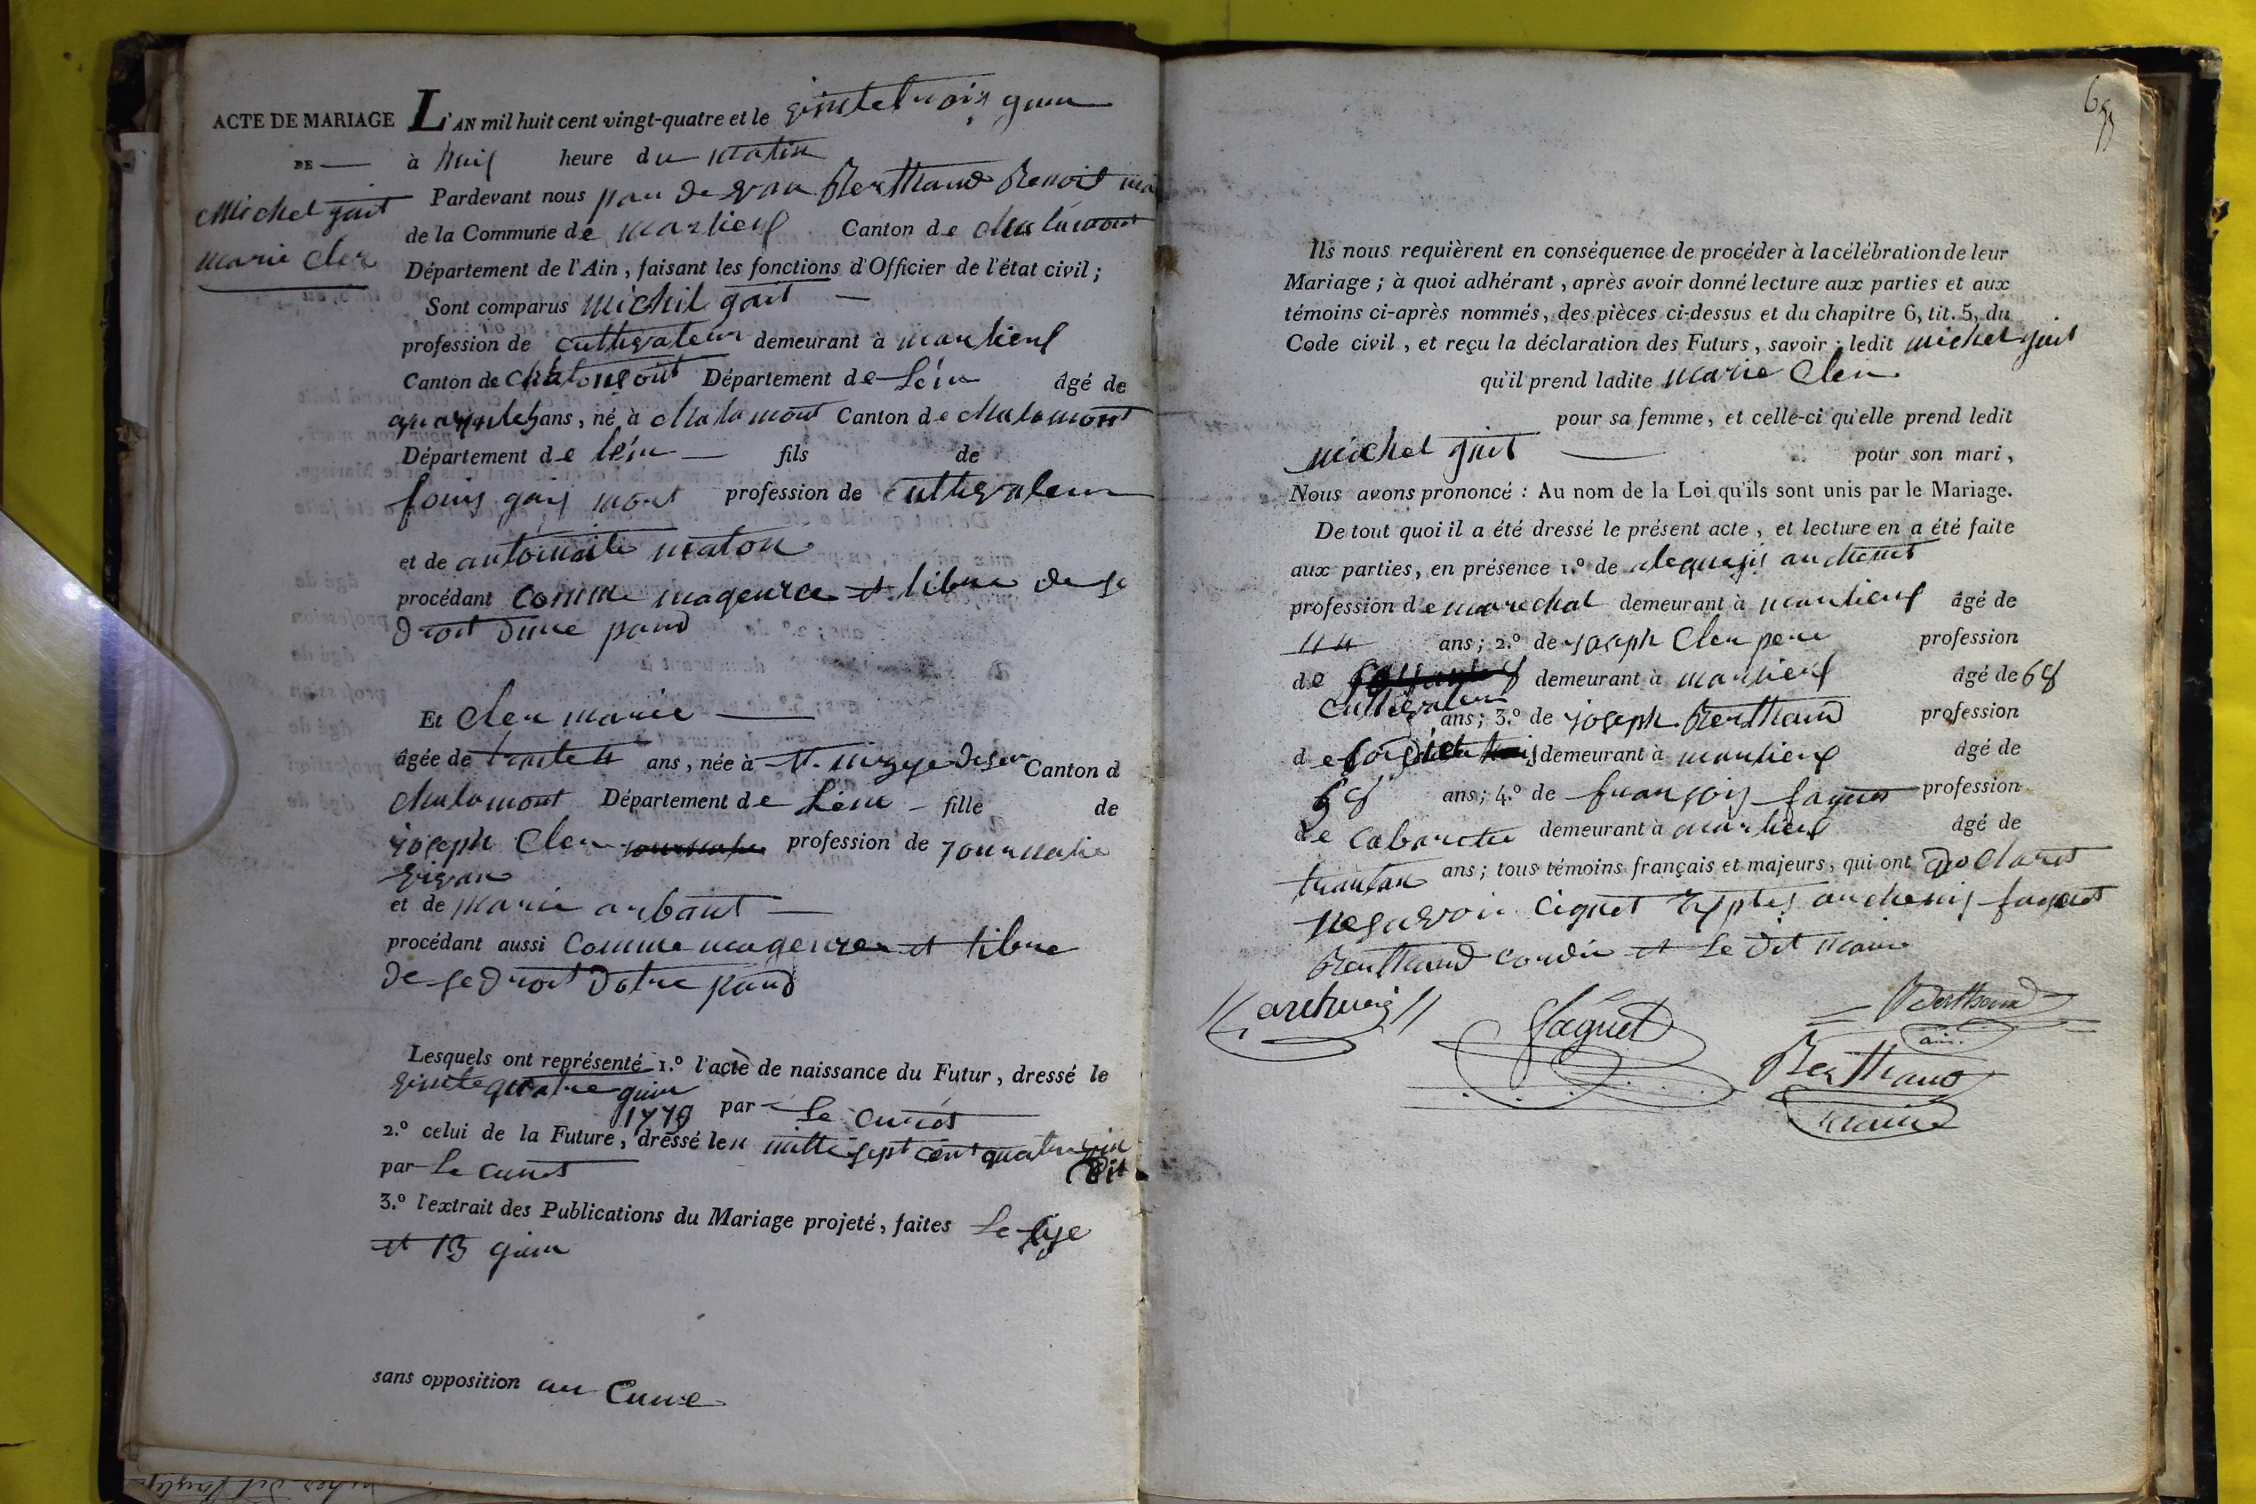 ACTE DE MARIAGE
DE
Michel gait
marie Cler
L'AN mil huit cent vingt-quatre et le vintetrois guin
à huis heure du matin
Pardevant nous par de van Berthand Benoit
de la Commune de marlieux Canton de Chalamont
Département de l'Ain, faisant les fonctions d'Officier de l'état civil;
Sont comparus michil gait
profession de cultivateur demeurant à marlieux
Canton de Chalamont Département de léin âgé de
ans, né à Chalamont Canton de Chalamont
Département de léin fils de
mort profession de cultivateur
et de antoinaite maton
procédant comme mageure et libre de se
droit dune pand
Et Cler marie
âgée de trante 4 ans, née à Canton d
Chalamont Département de léin fille de
joseph Cler profession de journalie
vivan
et de marie arbant
procédant aussi comme mageure et libre
de se droit dotre pand
Lesquels ont représenté 1.º l'acte de naissance du Futur, dressé le
vinte quatre guin
par le curés
2.º celui de la Future, dressé le mille sept cent quatre vin
dit
par le curés
3.º l'extrait des Publications du Mariage projeté, faites le
et 13 guin
sans opposition au cune
Ils nous requièrent en conséquence de procéder à la célébration de leur
Mariage; à quoi adhérant, après avoir donné lecture aux parties et aux
témoins ci-après nommés, des pièces ci-dessus et du chapitre 6, tit. 5, du
Code civil, et reçu la déclaration des Futurs, savoir: ledit michel gait
qu'il prend ladite marie Cler
pour sa femme, et celle-ci qu'elle prend ledit
michel gait pour son mari,
Nous avons prononcé: Au nom de la Loi qu'ils sont unis par le Mariage.
De tout quoi il a été dressé le présent acte, et lecture en a été faite
aux parties, en présence 1.º de
profession de marechal demeurant à marlieux âgé de
44 ans; 2.º de joseph Cler pere profession
de demeurant à marlieux âgé de 68
cultivateur
ans; 3.º de joseph Berthand profession
de demeurant à marlieux âgé de
ans; 4.º de françois faguet profession
de cabaretie demeurant à marlieux âgé de
ans; tous témoins français et majeurs, qui ont declarés
ne savoir signer faguet
Berthand cordie et le dit maire
Faguet
Berthand
ainé
Berthand
maire